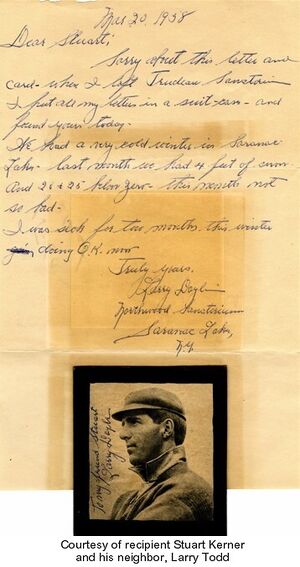 Mar 20, 1958
Dear Stuart;
Sorry about this letter and
card - when I left Trudeau Sanatorium
I put all my letters in a suit-case - and
found yours today.
We had a very cold winter in Saranac
Lake - last month we had 4 feet of snow.
And 26 + 25 below zero - this month not
so bad -
I was sick for two months this winter
doing O.K. now
Truly yours.
Larry Doyle
Northwood Sanatorium
Saranac Lake,
N.Y.
To my friend Stuart
Larry Doyle
Courtesy of recipient Stuart Kerner
and his neighbor, Larry Todd